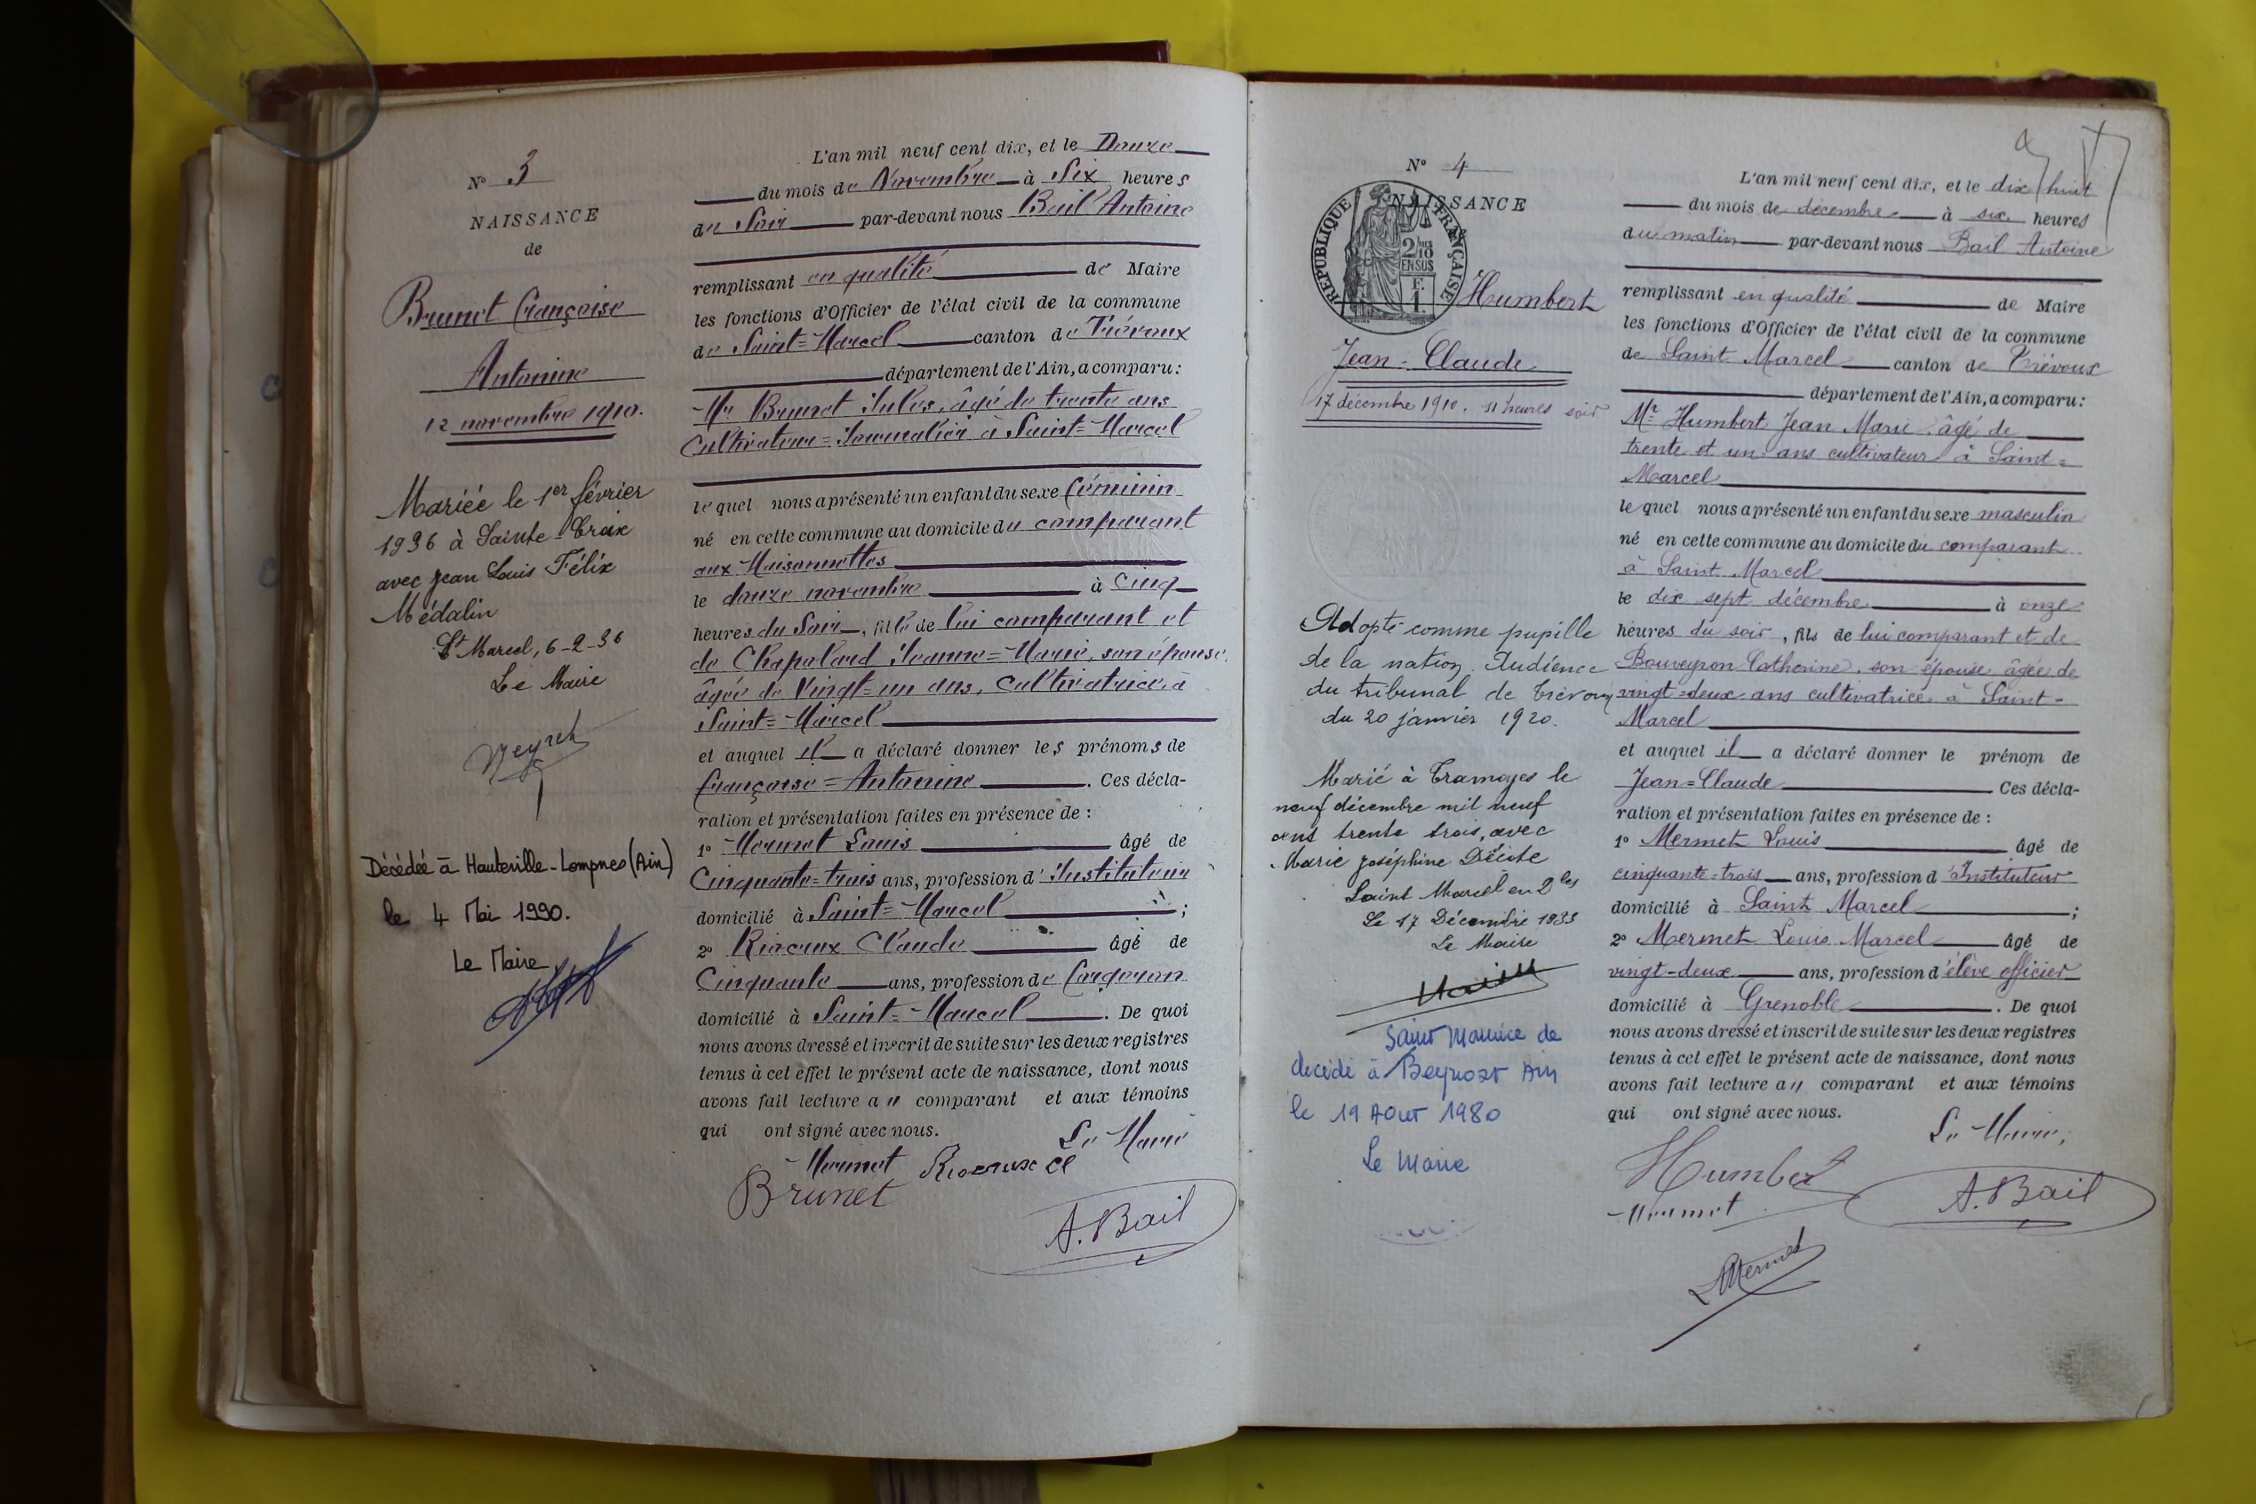 N° 3
NAISSANCE
de
Brunet Françoise
Antonine
12 novembre 1910.
Mariée le 1er février
1936 à Sainte-Croix
avec Jean Louis Félix
Médalin
St Marcel, 6-2-36
Le Maire
Neyret
Décédée à Hauteville-Lompnes (Ain)
le 4 Mai 1990.
Le Maire
L'an mil neuf cent dix, et le Douze
du mois de Novembre à Six heures
du Soir par-devant nous Bail Antoine
remplissant en qualité de Maire
les fonctions d'Officier de l'état civil de la commune
de Saint=Marcel canton de Trévoux
département de l'Ain, a comparu:
Mr Brunet Jules, âgé de trente ans
Cultivateur=Journalier à Saint=Marcel
lequel nous a présenté un enfant du sexe féminin
né en cette commune au domicile du comparant
aux Maisonnettes
le douze novembre à cinq
heures du Soir, fille de lui comparant et
de Chapeland Jeanne=Marie, son épouse,
âgée de Vingt=un ans, Cultivatrice à
Saint=Marcel
et auquel il a déclaré donner les prénoms de
Françoise=Antonine. Ces décla-
ration et présentation faites en présence de :
1° Mermet Louis âgé de
Cinquante=trois ans, profession d'Instituteur
domicilié à Saint=Marcel ;
2° Rioeux Claude âgé de
Cinquante ans, profession de
domicilié à Saint=Marcel. De quoi
nous avons dressé et inscrit de suite sur les deux registres
tenus à cet effet le présent acte de naissance, dont nous
avons fait lecture au comparant et aux témoins
qui ont signé avec nous.
Le Maire
Mermet
Brunet
A. Bail
N° 4
NAISSANCE
RÉPUBLIQUE FRANÇAISE
2/10
EN SUS
F.
1.
Humbert
Jean-Claude
17 décembre 1910. 11 heures soir
Adopté comme pupille
de la nation. Audience
du tribunal de Trévoux
du 20 janvier 1920.
Marié à Tramoyes le
neuf décembre mil neuf
cent trente trois, avec
Marie Joséphine Décite
Saint Marcel en Dbes
Le 17 Décembre 1933
Le Maire
Saint Maurice de
décédé à Beynost Ain
le 19 Août 1980
Le Maire
L'an mil neuf cent dix, et le dix huit
du mois de décembre à six heures
du matin par-devant nous Bail Antoine
remplissant en qualité de Maire
les fonctions d'Officier de l'état civil de la commune
de Saint Marcel canton de Trévoux
département de l'Ain, a comparu:
Mr Humbert Jean Marie âgé de
trente et un ans cultivateur à Saint=
Marcel
lequel nous a présenté un enfant du sexe masculin
né en cette commune au domicile du comparant
à Saint Marcel
le dix sept décembre à onze
heures du soir, fils de lui comparant et de
Bouveyron Catherine, son épouse âgée de
vingt=deux ans cultivatrice à Saint-
Marcel
et auquel il a déclaré donner le prénom de
Jean=Claude Ces décla-
ration et présentation faites en présence de :
1° Mermet Louis âgé de
cinquante=trois ans, profession d'Instituteur
domicilié à Saint Marcel ;
2° Mermet Louis Marcel âgé de
vingt-deux ans, profession d'élève officier
domicilié à Grenoble. De quoi
nous avons dressé et inscrit de suite sur les deux registres
tenus à cet effet le présent acte de naissance, dont nous
avons fait lecture au comparant et aux témoins
qui ont signé avec nous.
Le Maire,
Humbert
Mermet
A. Bail
LMermet